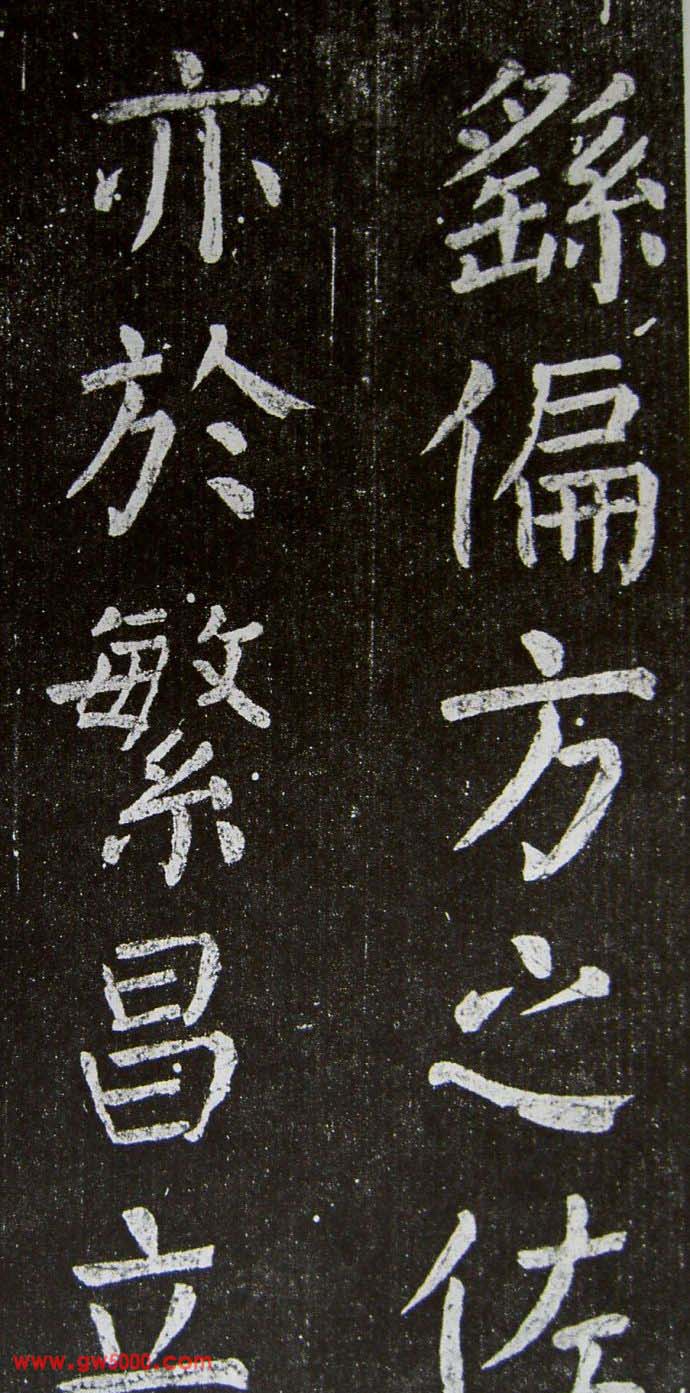 繇偏方之佐
亦於繁昌立
www.gw5000.com